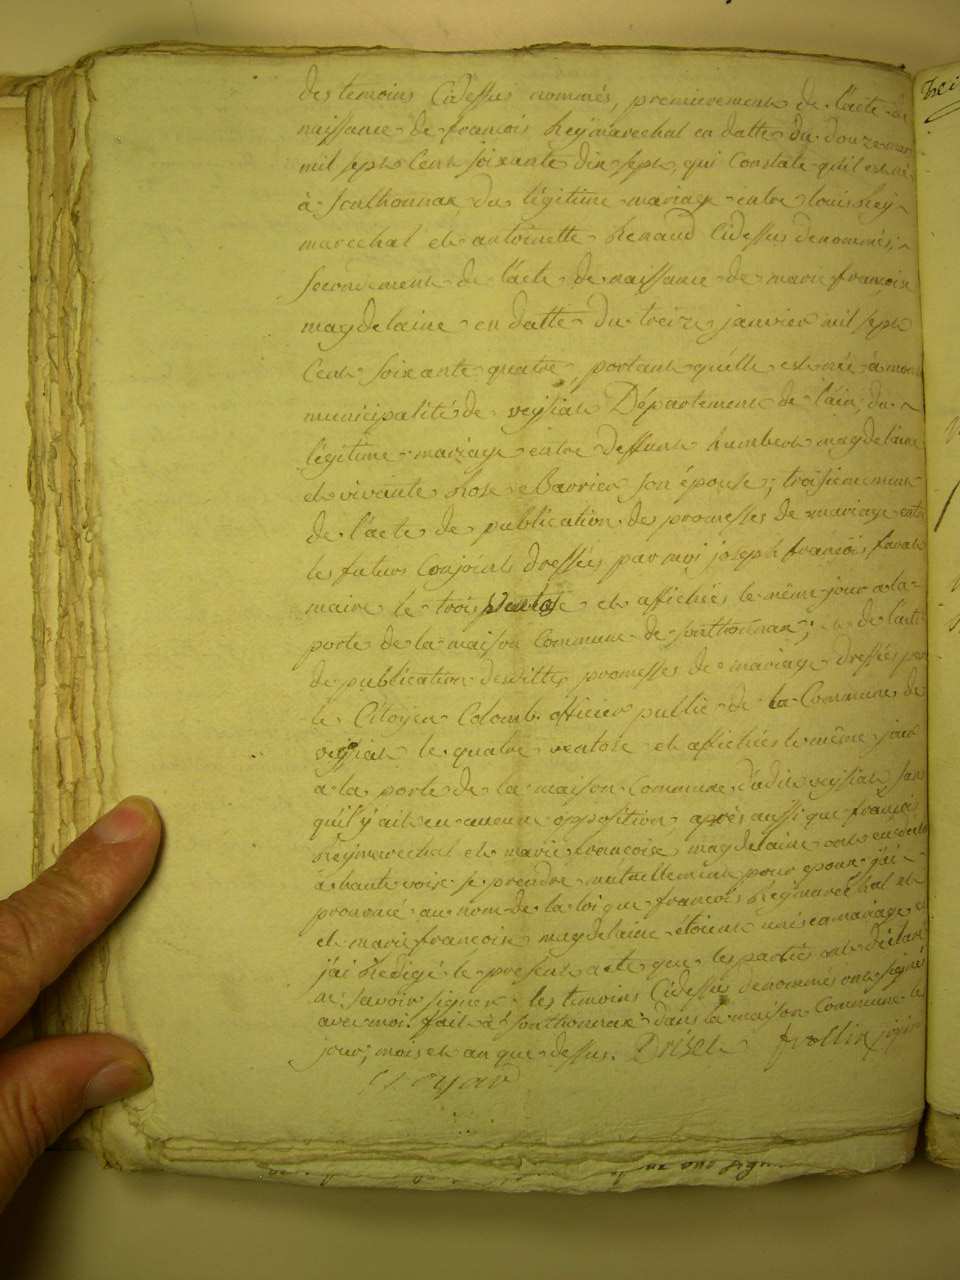 des temoins Cidessus nommés, premierement de l'acte de
naissance de francois Reymarechal en datte du douze mars
mil sept Cent soixante dix sept, qui Constate qu'il est né
à Sonthonnax du légitime mariage entre louis Rey-
marechal et antoinette Renaud Cidessus denommés;
secondement de l'acte de naissance de marie françoise
magdelaine en datte du treize janvier mil sept
Cent soixante quatre portant qu'elle est née à
municipalité de veysiat Département de l'ain, du
légitime mariage entre deffunt humbert magdelaine
et vivante Rose Barrier son épouse; troisiemement
de l'acte de publication de promesses de mariage entre
les futurs Conjoints dressées par moi joseph françois favat
maire le trois ventose et affichées le même jour a la
porte de la maison Commune de sonthonnax; de l'acte
de publication desdittes promesses de mariage dressées par
le Citoyen Colomb officier public de la Commune de
veyziat le quatre ventose et affichées le même jour
a la porte de la maison Commune dudit veysiat sans
qu'il y ait eu aucune opposition, après aussi que françois
Reymarechal et marie françoise magdelaine ont eu declaré
à haute voix se prendre mutuellement pour epoux j'ai
prononcé au nom de la loi que françois Reymarechal et
et marie françoise magdelaine étoient unis en mariage et
j'ai Rédigé le present acte que les parties ont déclaré
ne savoir signer les temoins Cidessus denommés ont signés
avec moi. fait à sonthonnax dans la maison Commune le
jour, mois et an que dessus.